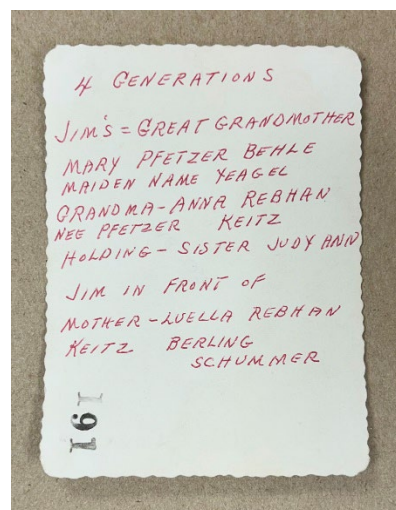 4 GENERATIONS
JIM'S = GREAT GRANDMOTHER
MARY PFETZER BEHLE
MAIDEN NAME YEAGEL
GRANDMA - ANNA REBHAN
NEE PFETZER KEITZ
HOLDING - SISTER JUDY ANN
JIM IN FRONT OF
MOTHER - LUELLA REBHAN
KEITZ BERLING
SCHUMMER
191